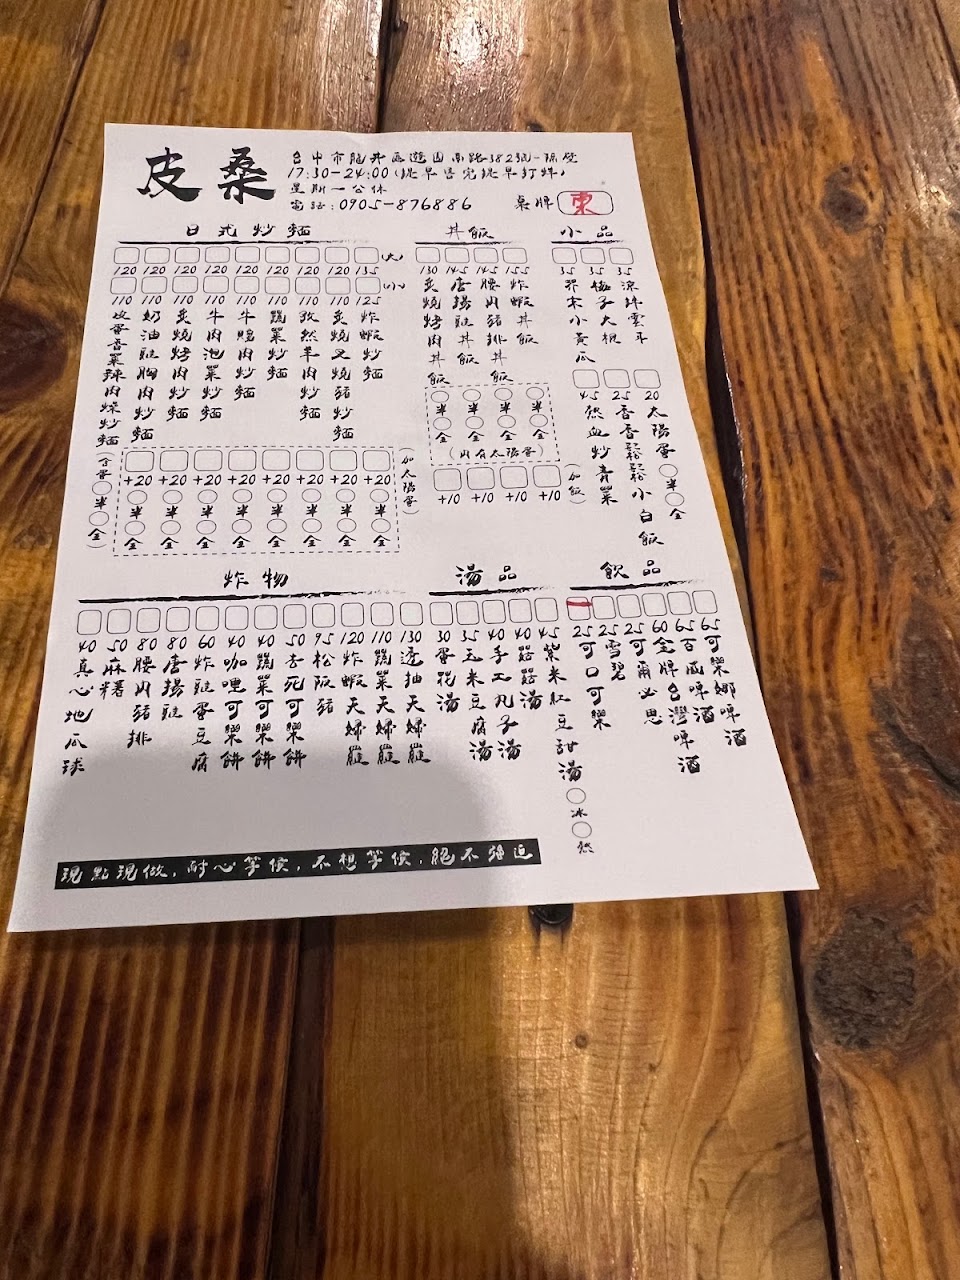 皮桑
台中市龍井區遊園南路382號-隔壁
17:30-24:00(提早售完提早打烊)
星期一公休
電話:0905-876886
桌牌 東
日式炒麵
(大)
120 120 120 120 120 120 120 120 135
(小)
110 皮蛋香菜辣肉燥炒麵
110 奶油雞胸肉炒麵
110 炙燒烤肉炒麵
110 牛肉泡菜炒麵
110 牛肉炒麵
110 蔬菜炒麵
110 孜然羊肉炒麵
110 炙燒叉燒豬炒麵
125 炸蝦炒麵
(含蛋 半 全)
+20 +20 +20 +20 +20 +20 +20 +20 +20
半 半 半 半 半 半 半 半 半
全 全 全 全 全 全 全 全 全
(加太陽蛋)
丼飯
130 炙燒烤肉丼飯
145 唐揚雞丼飯
145 腰內豬排丼飯
155 炸蝦丼飯
半 半 半 半
全 全 全 全
(內有太陽蛋)
+10 +10 +10 +10
(加飯)
小品
35 芥末小黃瓜
35 梅子大根
35 涼拌雲耳
45 熱血炒青菜
25 香香鬆鬆小白飯
20 太陽蛋 半 全
炸物
40 真心地瓜球
50 麻糬
80 腰內豬排
80 唐揚雞
60 炸雞蛋豆腐
40 咖哩可樂餅
40 蔬菜可樂餅
50 杏死可樂餅
95 松阪豬
120 炸蝦天婦羅
110 蔬菜天婦羅
130 透抽天婦羅
湯品
30 蛋花湯
35 玉米豆腐湯
40 手工丸子湯
40 湯
45 紫米紅豆甜湯 冰 熱
飲品
25 可口可樂
25 雪碧
25 可爾必思
60 金牌台灣啤酒
65 百威啤酒
65 可樂娜啤酒
現點現做,耐心等候,不想等候,絕不強迫